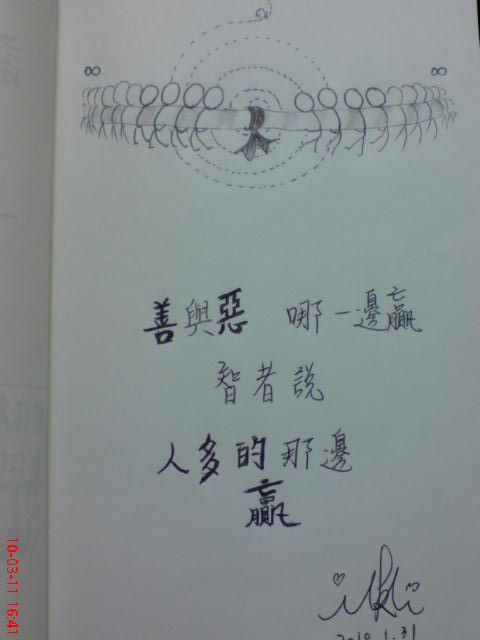 ∞ ∞
善與惡 哪一邊贏
智者說
人多的那邊
贏
2010.1.31
10-03-11 16:41